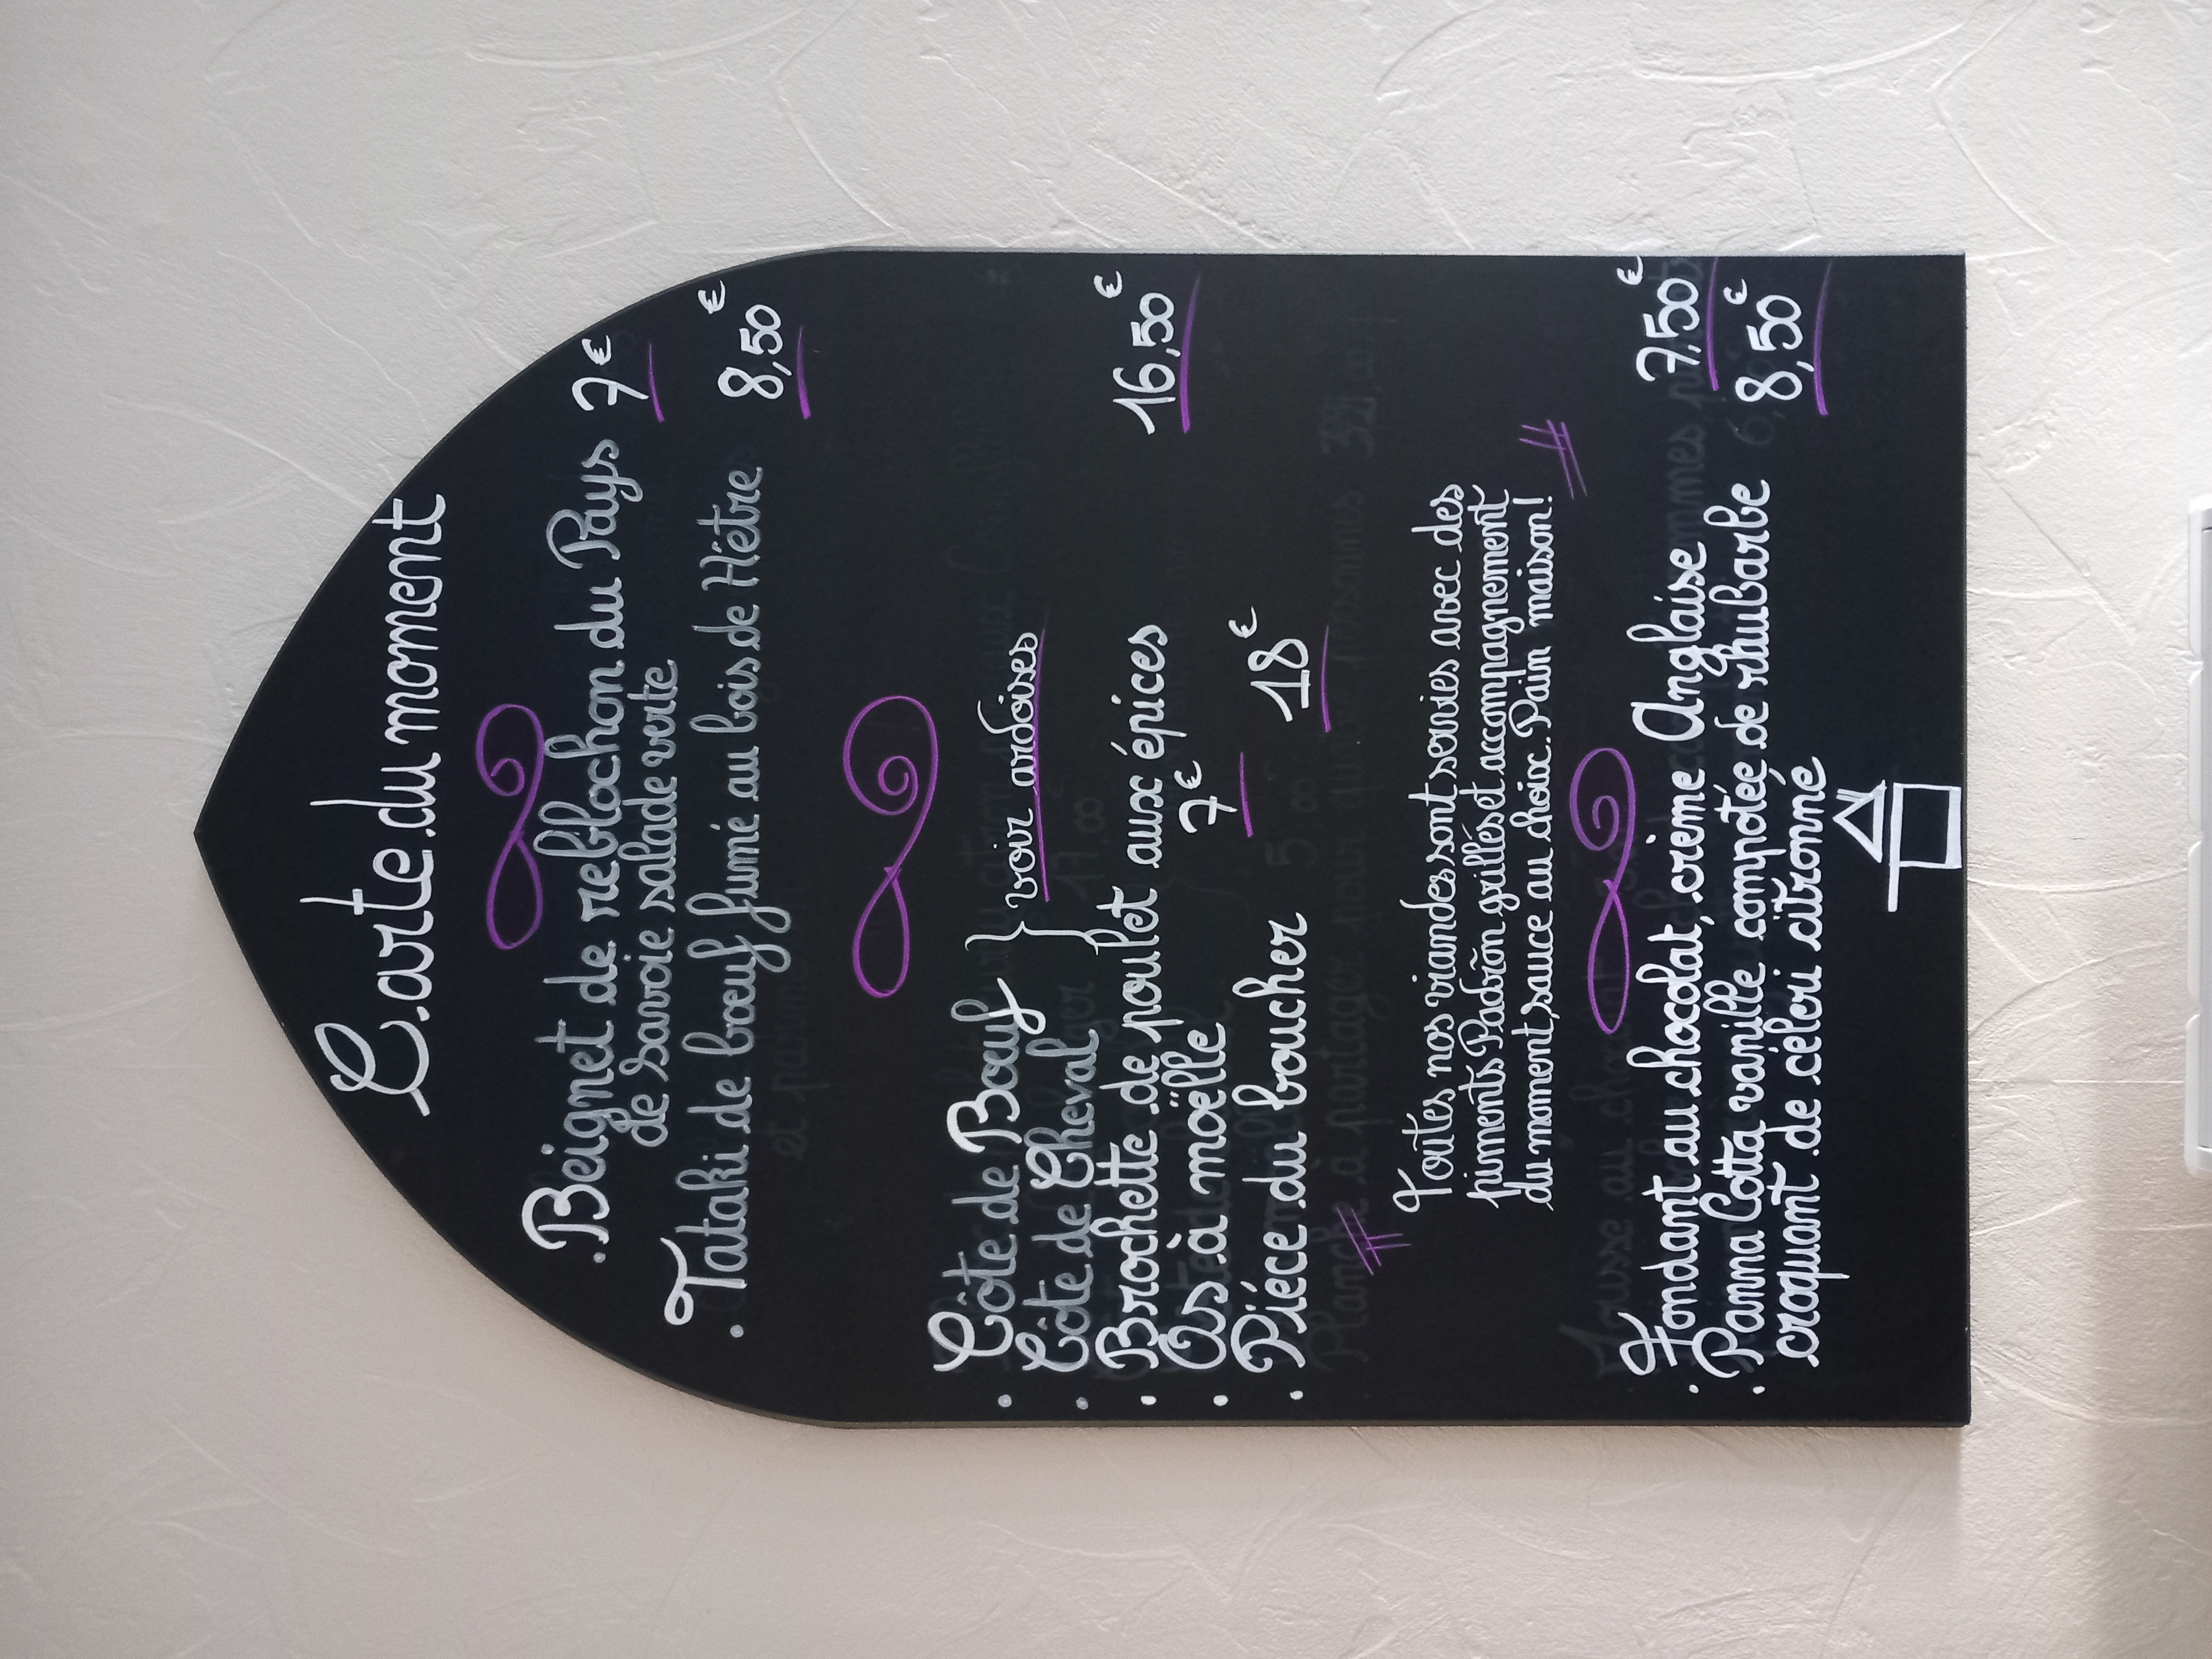 Carte du moment
. Beignet de reblochon du Pays 7€
de savoie salade verte
. Tataki de bœuf fumé au bois de Hêtre 8,50€
. Côte de Bœuf
. Côte de Cheval } voir ardoises
. Brochette de poulet aux épices 16,50€
. Os à moëlle 7€
. Piéce du boucher 18€
Toutes nos viandes sont servies avec des
piments Padrõn grillés et accompagnement
du moment, sauce au choix. Pain maison!
. Fondant au chocolat, crème Anglaise 7,50€
. Panna Cotta vanille compotée de rhubarbe 8,50€
craquant de céleri citronné